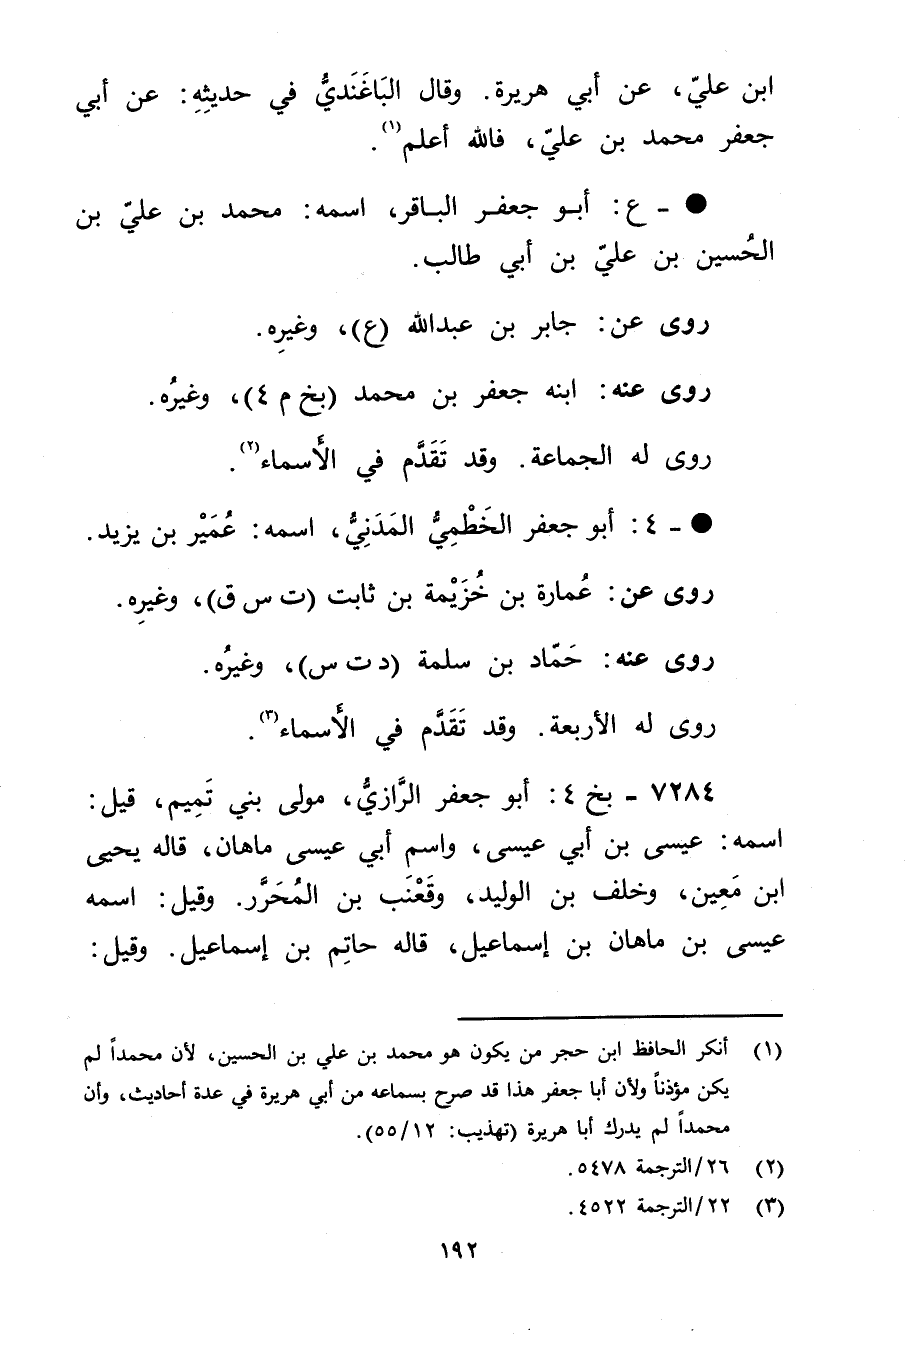 ابن عليّ، عن أبي هريرة. وقال البَاغَنديُّ في حديثِهِ: عن أبي
جعفر محمد بن عليّ، فالله أعلم(١).
● - ع: أبـو جعفـر البـاقر، اسمه: محمد بن عليّ بن
الحُسين بن عليّ بن أبي طالب.
روى عن: جابر بن عبدالله (ع)، وغيرِه.
روى عنه: ابنه جعفر بن محمد (بخ م ٤)، وغيرُه.
روى له الجماعة. وقد تَقَدَّم في الأَسماء(٢).
● - ٤: أبو جعفر الخَطْمِيُّ المَدَنِيُّ، اسمه: عُمَيْر بن يزيد.
روى عن: عُمارة بن خُزَيْمة بن ثابت (ت س ق)، وغيرِه.
روى عنه: حَمّاد بن سلمة (د ت س)، وغيرُه.
روى له الأربعة. وقد تَقَدَّم في الأَسماء(٣).
٧٢٨٤ - بخ ٤: أبو جعفر الرَّازيُّ، مولى بني تَمِيم، قيل:
اسمه: عيسى بن أبي عيسى، واسم أبي عيسى ماهان، قاله يحيى
ابن مَعِين، وخلف بن الوليد، وقَعْنَب بن المُحَرَّر. وقيل: اسمه
عيسى بن ماهان بن إسماعيل، قاله حاتِم بن إسماعيل. وقيل:
(١) أنكر الحافظ ابن حجر من يكون هو محمد بن علي بن الحسين، لأن محمداً لم
يكن مؤذناً ولأن أبا جعفر هذا قد صرح بسماعه من أبي هريرة في عدة أحاديث، وأن
محمداً لم يدرك أبا هريرة (تهذيب: ١٢/٥٥).
(٢) ٢٦/الترجمة ٥٤٧٨.
(٣) ٢٢/الترجمة ٤٥٢٢.
١٩٢